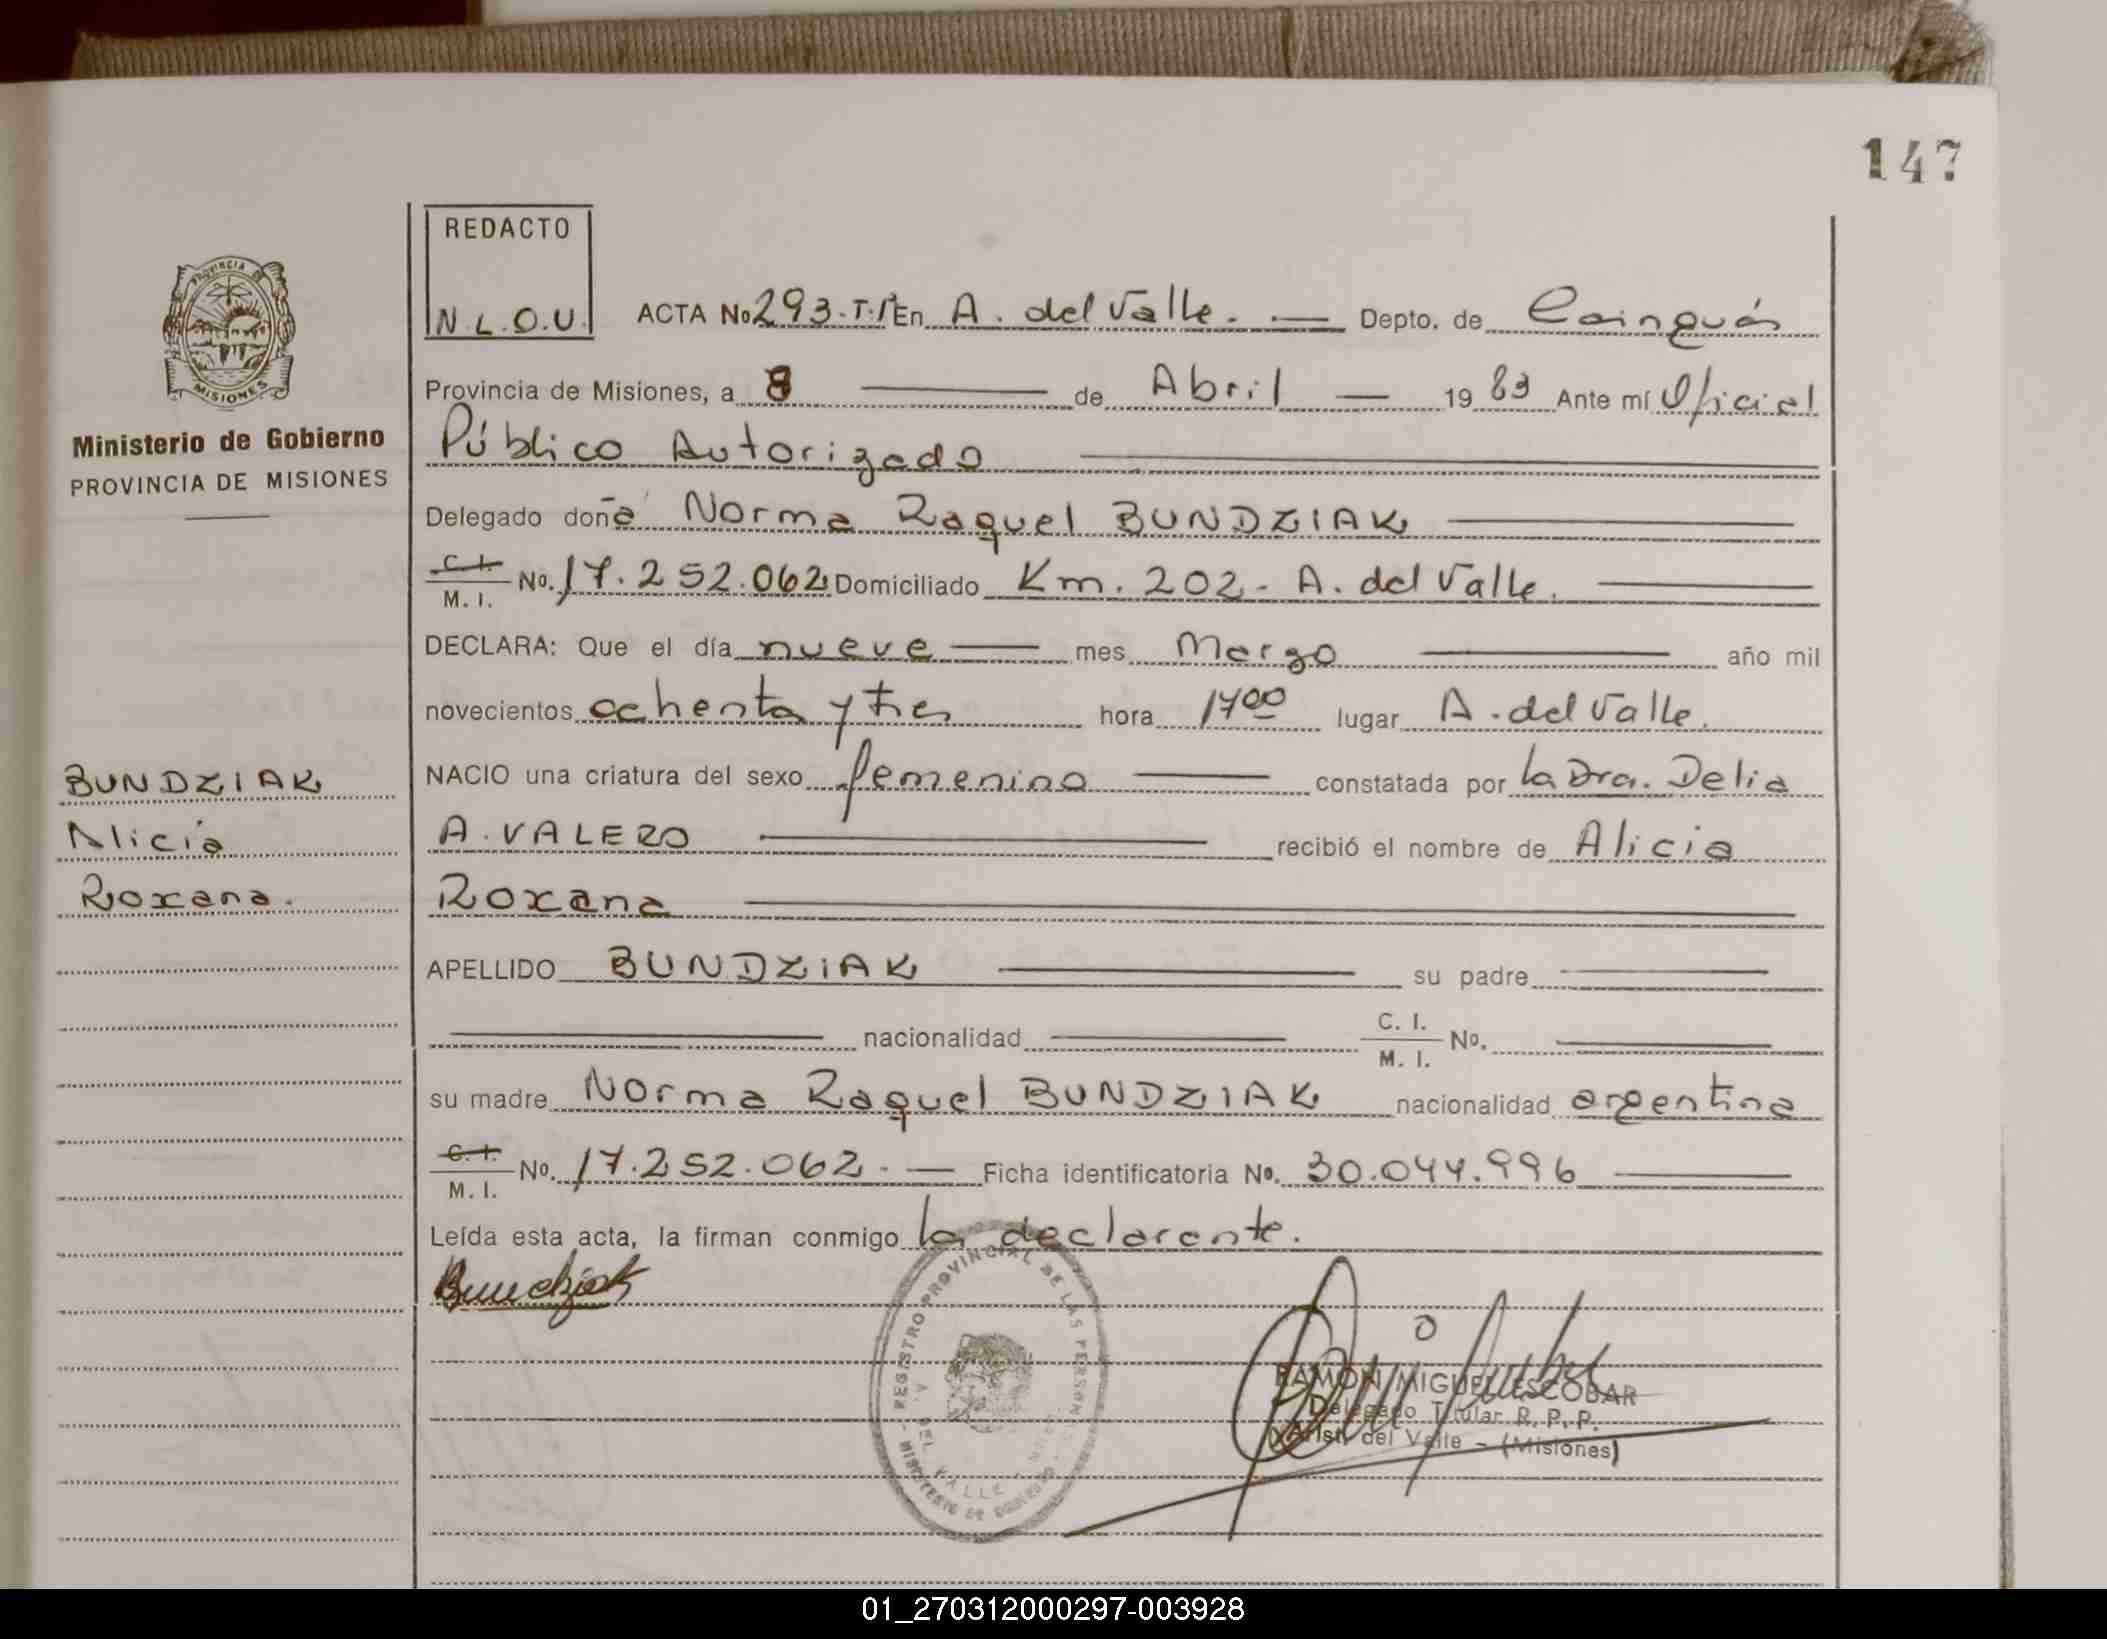 147
REDACTO
N.L.O.U.
PROVINCIA DE
MISIONES
Ministerio de Gobierno
PROVINCIA DE MISIONES
ACTA No 293-T.I En A. del Valle. — Depto. de Cainguás
Provincia de Misiones, a 8 — de Abril — 19 83 Ante mí Oficial
Público Autorizado
Delegado doña Norma Raquel BUNDZIAK
C. I. / M. I. No. 17.252.062 Domiciliado Km. 202 - A. del Valle.
DECLARA: Que el día nueve — mes Marzo — año mil
novecientos ochenta y tres hora 17 00 lugar A. del Valle.
NACIO una criatura del sexo femenino — constatada por la Dra. Delia
A. VALERO — recibió el nombre de Alicia
Roxana
APELLIDO BUNDZIAK — su padre —
— nacionalidad — C. I. / M. I. No. —
su madre Norma Raquel BUNDZIAK nacionalidad argentina
C. I. / M. I. No. 17.252.062. — Ficha identificatoria No. 30.044.996 —
Leída esta acta, la firman conmigo la declarante.
BUNDZIAK
Alicia
Roxana.
Bundziak
REGISTRO PROVINCIAL DE LAS PERSONAS
MINISTERIO DE GOBIERNO
A. DEL VALLE
RAMON MIGUEL ESCOBAR
Delegado Titular R. P. P.
Arist. del Valle - (Misiones)
01_270312000297-003928